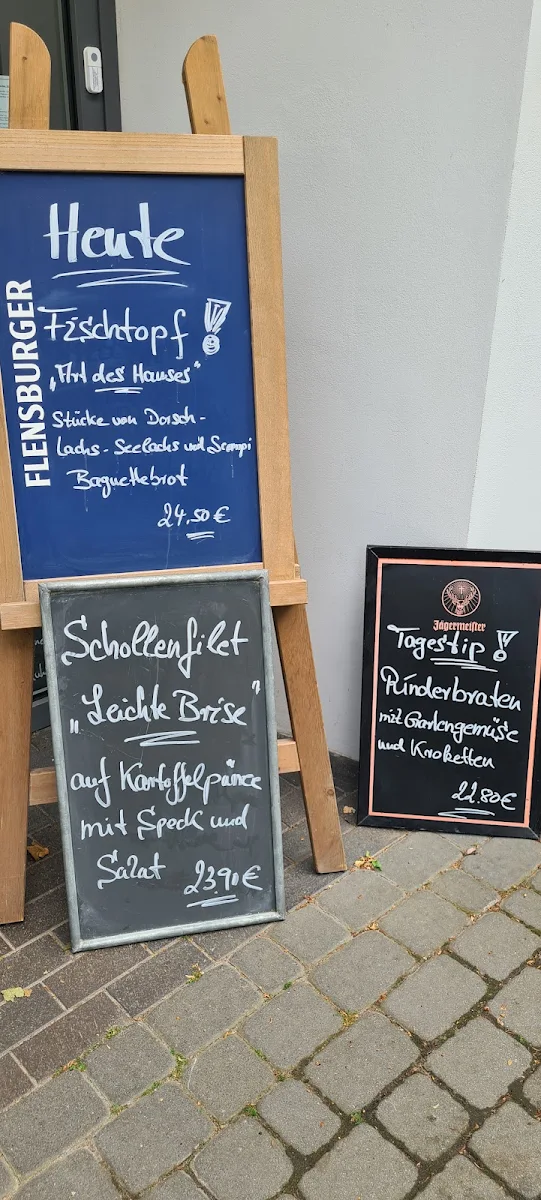 FLENSBURGER
Heute
Fischtopf!
„Art des Hauses"
Stücke von Dorsch-
Lachs-Seelachs und Scampi
Baguettebrot
24.50 €
Schollenfilet
„Leichte Brise"
auf Kartoffelpüree
mit Speck und
Salat 23.90 €
Jägermeister
Tagestip!
Rinderbraten
mit Gartengemüse
und Kroketten
22.80 €